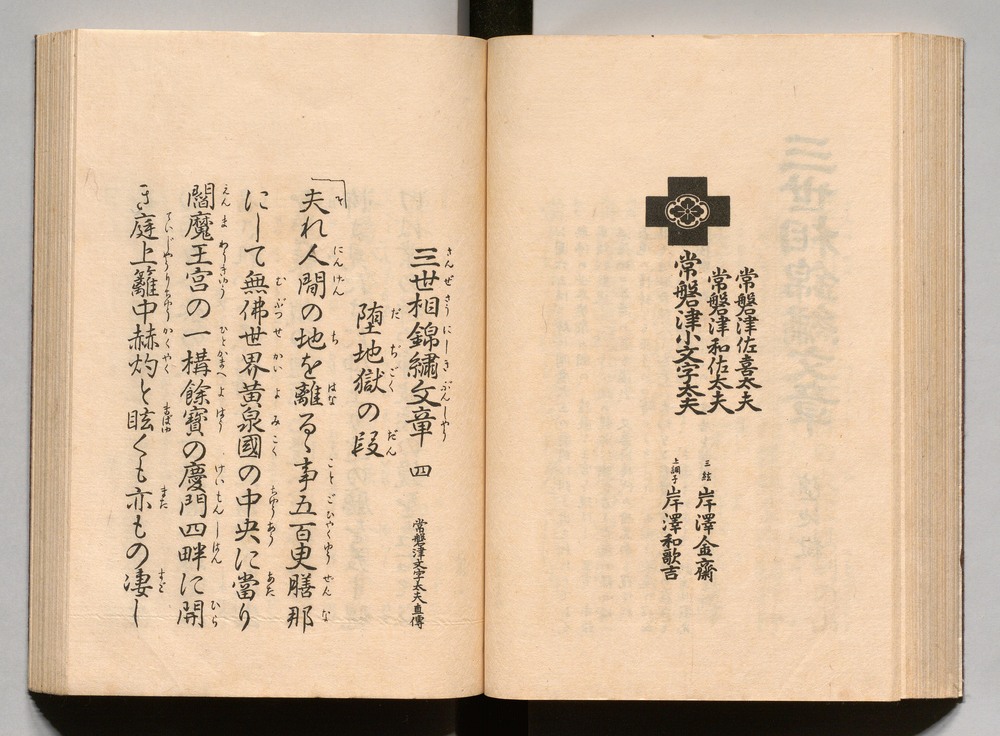 常磐津佐喜太夫
常磐津和佐太夫
常磐津小文字太夫
三絃 岸澤金齋
上調子 岸澤和歌吉
三世相錦繡文章 四
常磐津文字太夫直傳
堕地獄の段
夫れ人間の地を離るゝ事五百更膳那
にして無佛世界黄泉國の中央に當り
閻魔王宮の一構餘寶の慶門四畔に開
き庭上籬中赫灼と眩くも亦もの凄し